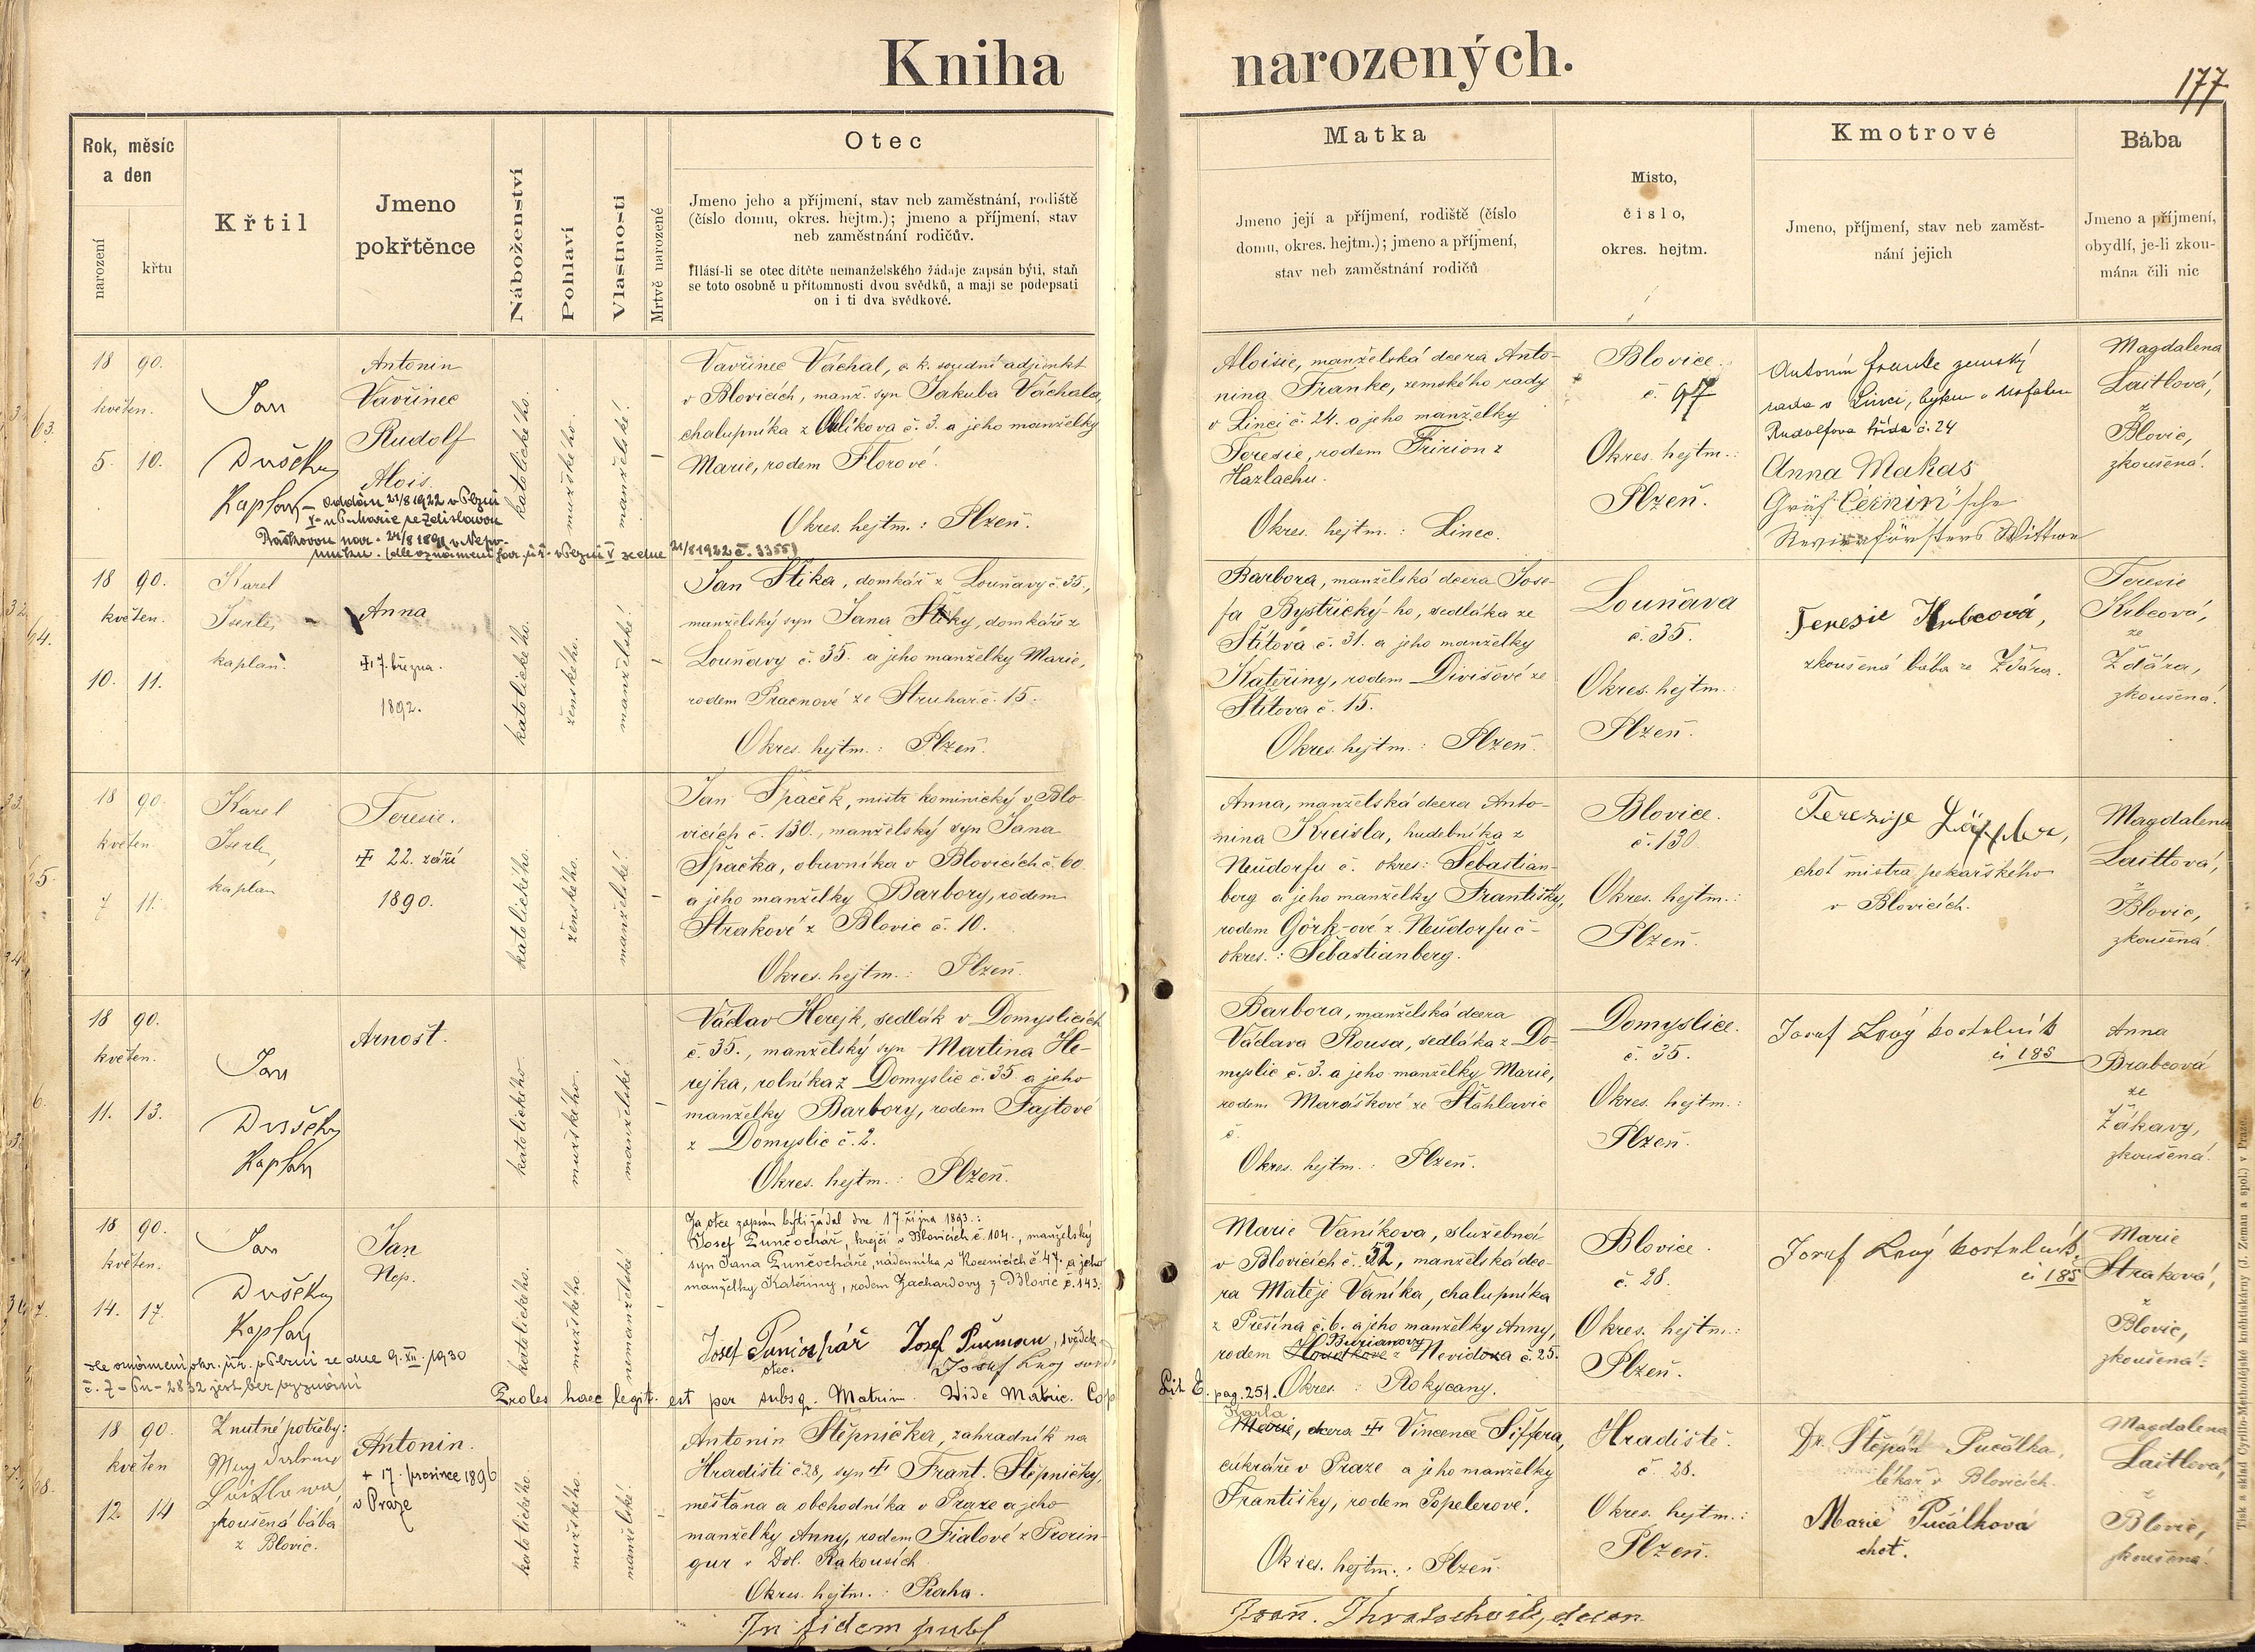 Kniha narozených.
177
Rok, měsíc
a den
narození
křtu
Křtil
Jmeno
pokřtěnce
Náboženství
Pohlaví
Vlastnosti
Mrtvě narozené
Otec
Jmeno jeho a příjmení, stav neb zaměstnání, rodiště
(číslo domu, okres. hejtm.); jmeno a příjmení, stav
neb zaměstnání rodičův.
Hlásí-li se otec dítěte nemanželského žádaje zapsán býti, staň
se toto osobně u přítomnosti dvou svědků, a mají se podepsati
on i ti dva svědkové.
Matka
Jmeno její a příjmení, rodiště (číslo
domu, okres. hejtm.); jmeno a příjmení,
stav neb zaměstnání rodičů
Místo,
číslo,
okres. hejtm.
Kmotrové
Jmeno, příjmení, stav neb zaměst-
nání jejich
Bába
Jmeno a příjmení,
obydlí, je-li zkou-
mána čili nic
63.
18 90.
květen.
5. 10.
Jan
Dvščky
Kaplan
Antonin
Vavřinec
Rudolf
Alois.
oddán 21/8 1922 v Plzni
nar. 24/8 1891 v
21/8 1922 č. 3355)
katolického.
mužského.
manželské!
–
Vavřinec Váchal, c. k. soudní adjunkt
v Blovicích, manž. syn Jakuba Váchala,
chalupníka z č. 3. a jeho manželky
Marie, rodem Florové.
Okres. hejtm.: Plzeň.
Aloisie, manželská dcera Anto-
nina Franke, zemského rady
v Linci č. 24. a jeho manželky
Teresie, rodem Fririon z
Hazlachu.
Okres. hejtm.: Linec.
Blovice.
č. 97
Okres. hejtm.:
Plzeň.
Antonín Franke zemský
rada v Linci,
Rudolfova třída č. 24
Anna Makas
Gräf Černin'sche
Revierförsters Wittwe
Magdalena
Laitlová,
z
Blovic,
zkoušená.
64.
18 90.
květen.
10. 11.
Karel
Iserle,
kaplan.
Anna
17. března.
1892.
katolického.
ženského.
manželské!
–
Jan Štika, domkář z Louňavy č. 35.,
manželský syn Jana Štiky, domkáře z
Louňavy č. 35. a jeho manželky Marie,
rodem Pracnové ze Struhař č. 15.
Okres. hejtm.: Plzeň.
Barbora, manželská dcera Jose-
fa Bystřický-ho, sedláka ze
Štítova č. 31. a jeho manželky
Kateřiny, rodem Divišové ze
Štítova č. 15.
Okres. hejtm.: Plzeň.
Louňava
č. 35.
Okres. hejtm.:
Plzeň.
Teresie Krbcová,
zkoušená bába ze Ždára.
Teresie
Krbcová,
ze
Ždára,
zkoušená!
65.
18 90.
květen.
7 11.
Karel
Iserle,
kaplan
Teresie.
22. září
1890.
katolického.
ženského.
manželské!
–
Jan Špaček, mistr kominický v Blo-
vicích č. 130., manželský syn Jana
Špačka, obuvníka v Blovicích č. 60.
a jeho manželky Barbory, rodem
Strakové z Blovic č. 10.
Okres. hejtm.: Plzeň.
Anna, manželská dcera Anto-
nina Kreisla, hudebníka z
Neüdorfu č. okres: Šebastian-
berg a jeho manželky Františky,
rodem Görk-ové z Neüdorfu č-
okres.: Šebastianberg.
Blovice.
č. 130.
Okres. hejtm.:
Plzeň.
Terezije
choť mistra pekařského
v Blovicích.
Magdalena
Laitlová,
z
Blovic,
zkoušená.
6.
18 90.
květen.
11. 13.
Jan
Dvščky
Kaplan
Arnošt.
katolického
mužského.
manželské!
–
Václav Herejk, sedlák v Domyslicích
č. 35., manželský syn Martina He-
rejka, rolníka z Domyslic č. 35 a jeho
manželky Barbory, rodem Fajtové
z Domyslic č. 2.
Okres. hejtm.: Plzeň.
Barbora, manželská dcera
Václava Rousa, sedláka z Do-
myslic č. 3. a jeho manželky Marie,
rodem Maraškové ze Šťáhlavic
č.
Okres. hejtm.: Plzeň.
Domyslice.
č. 35.
Okres. hejtm.:
Plzeň.
Josef Lvový kostelník
či 185
Anna
Brabcová
ze
Žákavy,
zkoušená.
7.
18 90.
květen.
14. 17.
Jan
Dvščky
Kaplan
Jan
Nep.
dle oznámení okr. úř. v Plzni ze dne 9. XII. 1930
č. 7-Pu-2832 jest bez vyznání
katolického.
mužského
nemanželské
–
Za otce zapsán býti žádal dne 17. října 1893.:
Josef Punčochář, krejčí v Blovicích č. 104., manželský
syn Jana Punčocháře, nádenníka v Kocenicích č. 47. a jeho
manželky Kateřiny, rodem Zachardovy z Blovic č. 143.
Josef Punčochář Josef Purman, svědek
otec.
Exoles haec legit. est per subsq. Matrim. Vide Matric. Cop. Lit E. pag. 251.
Marie Vaníkova, služebná
v Blovicích č. 52, manželská dce-
ra Matěje Vaníka, chalupníka
z Přešína č. 6. a jeho manželky Anny,
Burianovy
rodem z Nevidova č. 25.
Okres: Rokycany.
Blovice.
č. 28.
Okres. hejtm.:
Plzeň.
Josef Lvový kostelník.
či 185
Marie
Straková,
z
Blovic,
zkoušená!
68.
18 90.
květen
12. 14
Z nutné potřeby:
zkoušená bába
z Blovic.
Antonin.
+ 17. prosince 1896
v Praze
katolického.
mužského.
manželské.
–
Antonin Štěpnička, zahradník na
Hradišti č. 28, syn Frant. Štěpničky,
měšťana a obchodníka v Praze a jeho
manželky Anny, rodem Fialové z Prorin-
gur v Dol. Rakousích.
Okres. hejtm.: Praha.
Karla
Marie, dcera Vincence Šiffera,
cukráře v Praze a jeho manželky
Františky, rodem Popelerové.
Okres. hejtm.: Plzeň
Hradiště.
č. 28.
Okres. hejtm.:
Plzeň.
Dr. Štěpán Pučálka,
lékař v Blovicích.
Marie Pučálková
choť.
Magdalena
Laitlová,
z
Blovic,
zkoušená!
In fidem publ
Joan. decan
Tisk a sklad Cyrillo-Methodějské knihtiskárny (J. Zeman a spol.) v Praze.